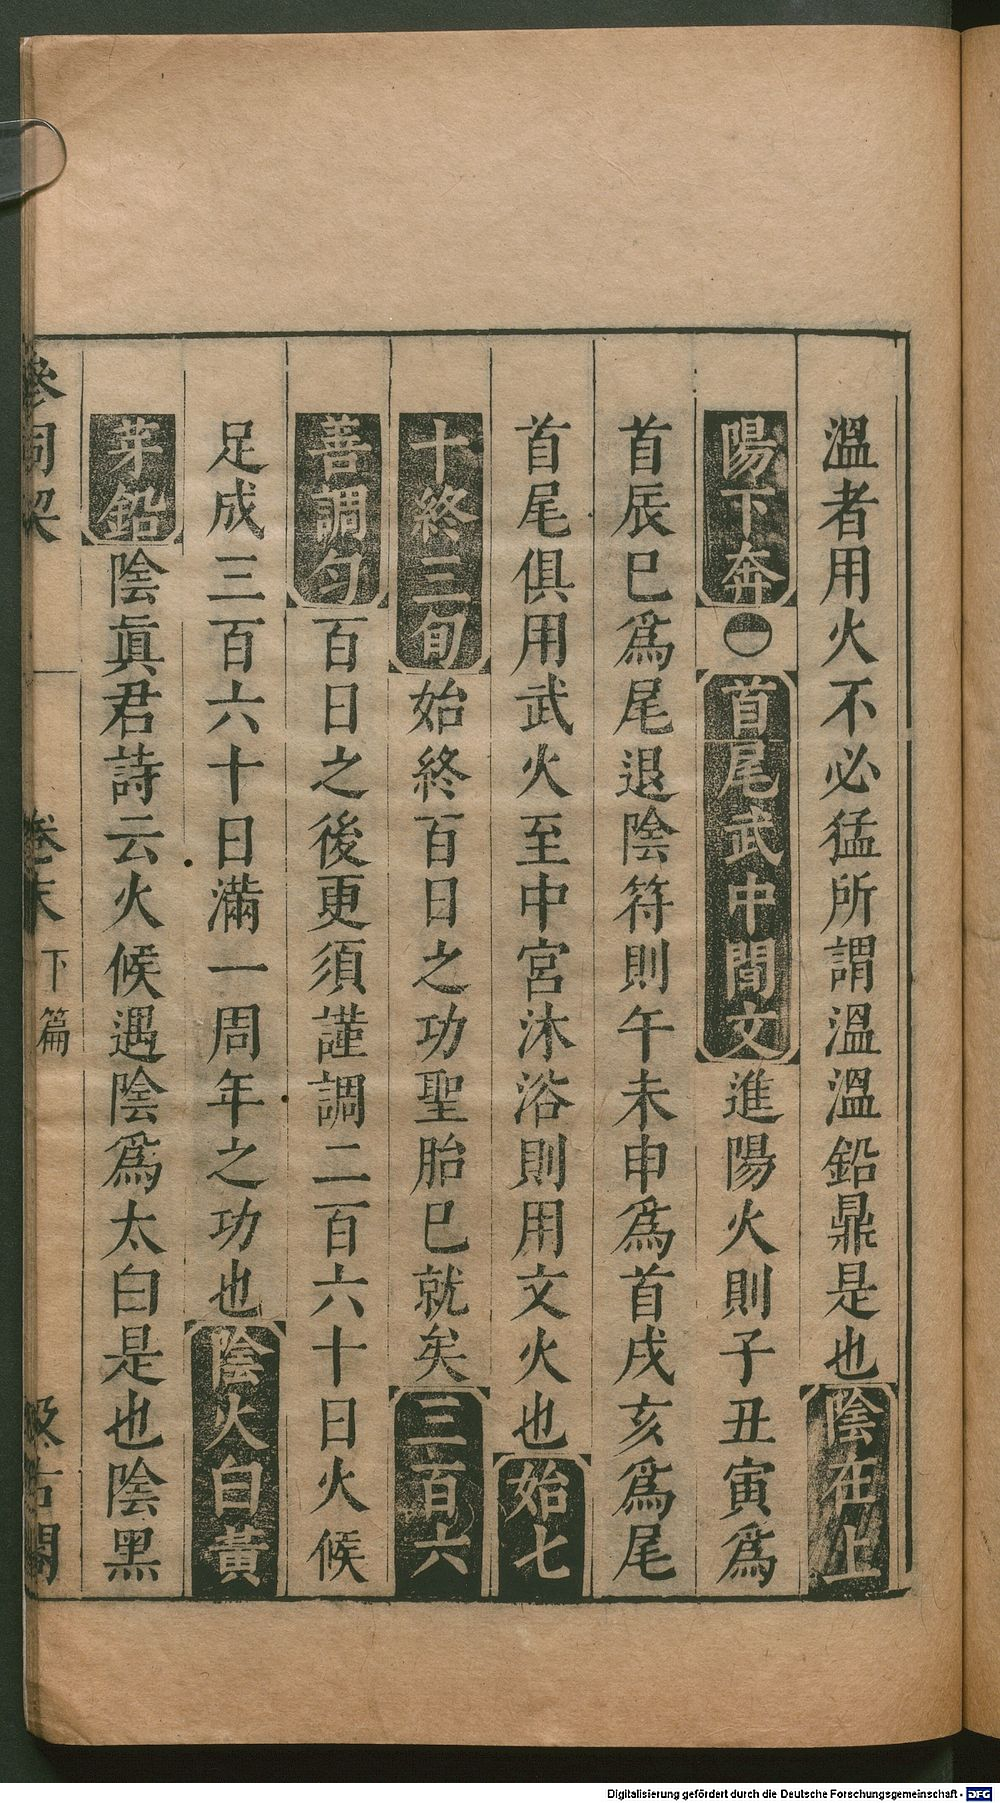 溫者用火不必猛所謂溫溫鉛鼎是也陰在上
陽下奔首尾武中間文進陽火則子丑寅爲
首辰巳爲尾退陰符則午未申爲首戌亥爲尾
首尾俱用武火至中宮沐浴則用文火也始七
十終三旬始終百日之功聖胎巳就矣三百六
善調勻百日之後更須謹調二百六十日火候
足成三百六十日滿一周年之功也陰火白黃
芽鉛陰眞君詩云火候遇陰爲太白是也陰黑
參同契 卷末 下篇 汲古閣
Digitalisierung gefördert durch die Deutsche Forschungsgemeinschaft - DFG